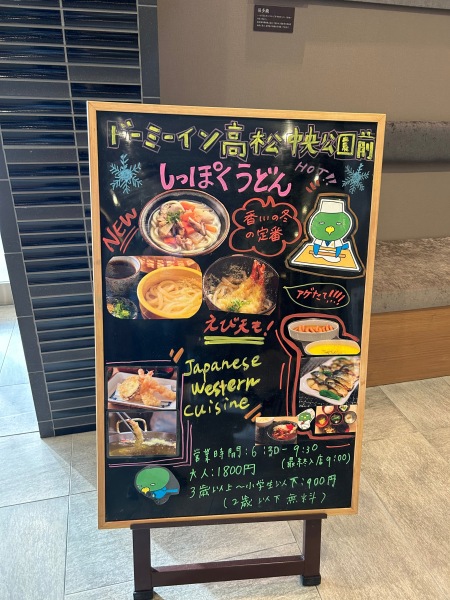 ドーミーイン高松中央公園前
しっぽくうどん
HOT!!
NEW
香川の冬
の定番
アゲたて!!!!
えび天も!
Japanese
Western
Cuisine
営業時間:6:30-9:30
(最終入店9:00)
大人:1800円
3歳以上〜小学生以下:900円
(2歳以下無料)